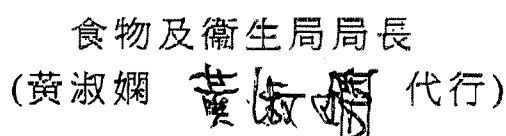 食物及衞生局局長
(黃淑嫻 黃淑嫻 代行)